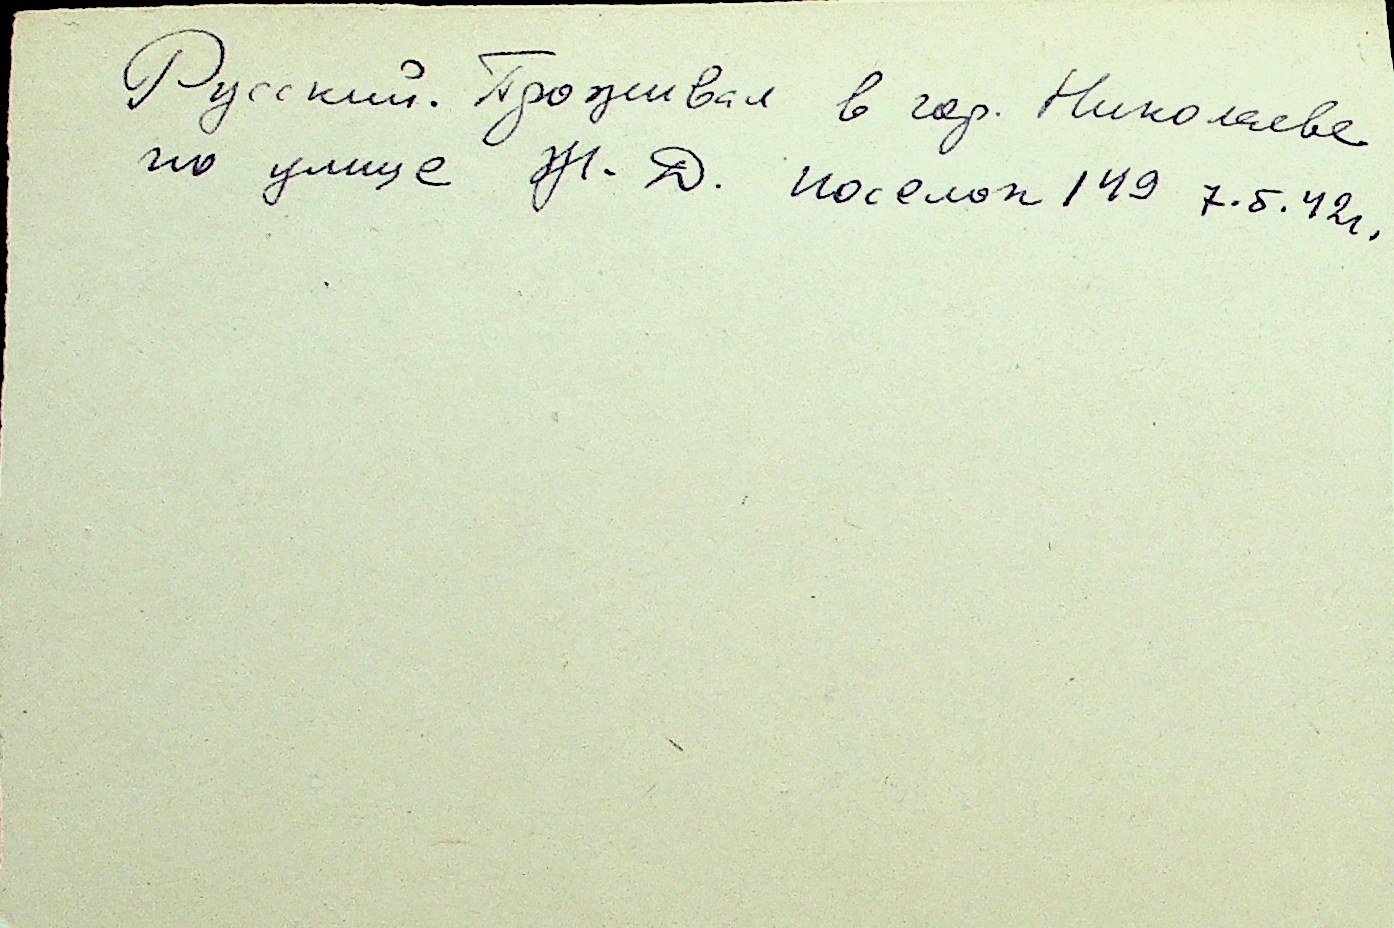 Русский. Проживал в гор. Николаеве
по улице Ж.Д. поселок 149 7.5.42г.